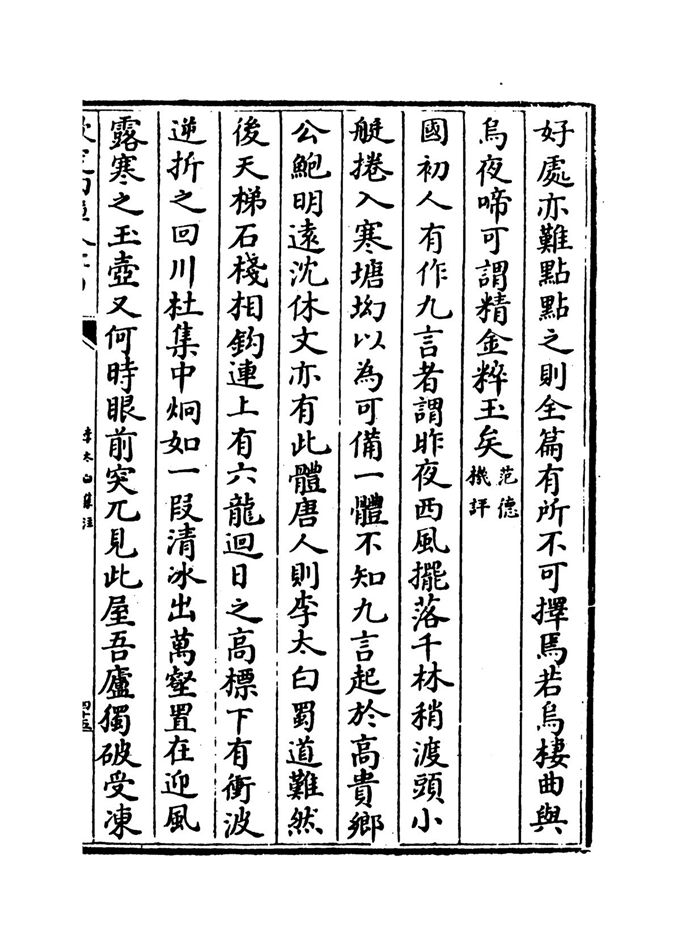 好處亦難點點之則全篇有所不可擇焉若烏棲曲與
烏夜啼可謂精金粹玉矣范德機評
國初人有作九言者謂昨夜西風擺落千林稍渡頭小
艇捲入寒塘坳以為可備一體不知九言起於高貴鄉
公鮑明遠沈休文亦有此體唐人則李太白蜀道難然
後天梯石棧相鈎連上有六龍迴日之高標下有衝波
逆折之回川杜集中炯如一段清冰出萬壑置在迎風
露寒之玉壺又何時眼前突兀見此屋吾廬獨破受凍
李太白集注
四十五